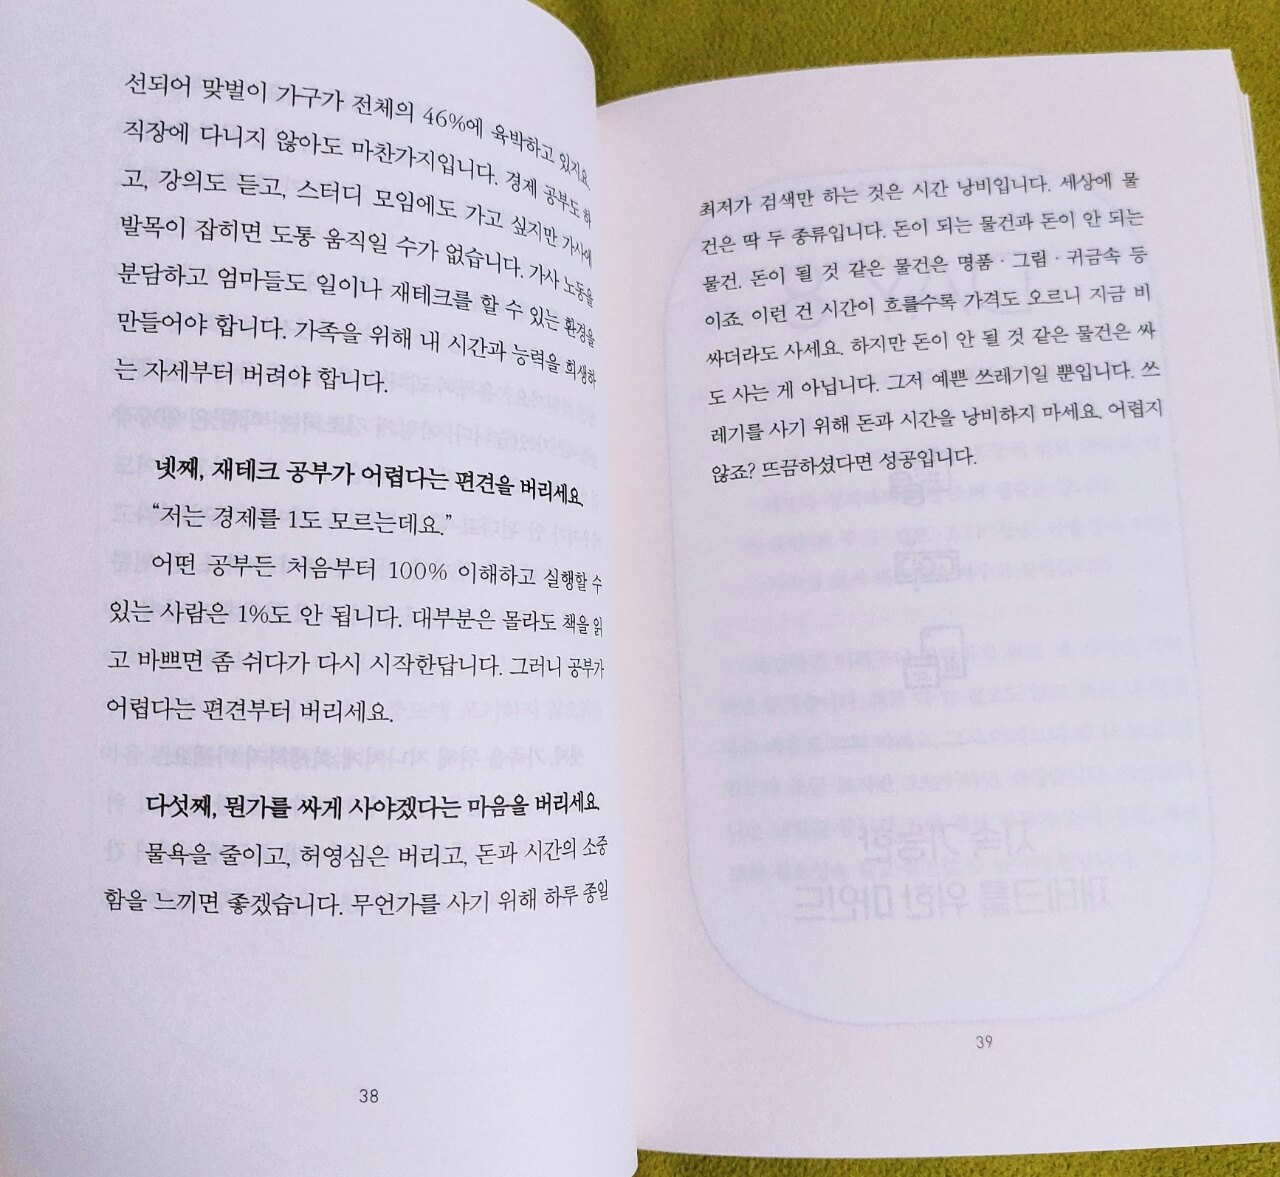 선되어 맞벌이 가구가 전체의 46%에 육박하고 있지요.
직장에 다니지 않아도 마찬가지입니다. 경제 공부도 하
고, 강의도 듣고, 스터디 모임에도 가고 싶지만 가사에
발목이 잡히면 도통 움직일 수가 없습니다. 가사 노동을
분담하고 엄마들도 일이나 재테크를 할 수 있는 환경을
만들어야 합니다. 가족을 위해 내 시간과 능력을 희생하
는 자세부터 버려야 합니다.
넷째, 재테크 공부가 어렵다는 편견을 버리세요
“저는 경제를 1도 모르는데요.”
어떤 공부든 처음부터 100% 이해하고 실행할 수
있는 사람은 1%도 안 됩니다. 대부분은 몰라도 책을 읽
고 바쁘면 좀 쉬다가 다시 시작한답니다. 그러니 공부가
어렵다는 편견부터 버리세요.
다섯째, 뭔가를 싸게 사야겠다는 마음을 버리세요
물욕을 줄이고, 허영심은 버리고, 돈과 시간의 소중
함을 느끼면 좋겠습니다. 무언가를 사기 위해 하루 종일
38
최저가 검색만 하는 것은 시간 낭비입니다. 세상에 물
건은 딱 두 종류입니다. 돈이 되는 물건과 돈이 안 되는
물건. 돈이 될 것 같은 물건은 명품·그림·귀금속 등
이죠. 이런 건 시간이 흐를수록 가격도 오르니 지금 비
싸더라도 사세요. 하지만 돈이 안 될 것 같은 물건은 싸
도 사는 게 아닙니다. 그저 예쁜 쓰레기일 뿐입니다. 쓰
레기를 사기 위해 돈과 시간을 낭비하지 마세요. 어렵지
않죠? 뜨끔하셨다면 성공입니다.
39